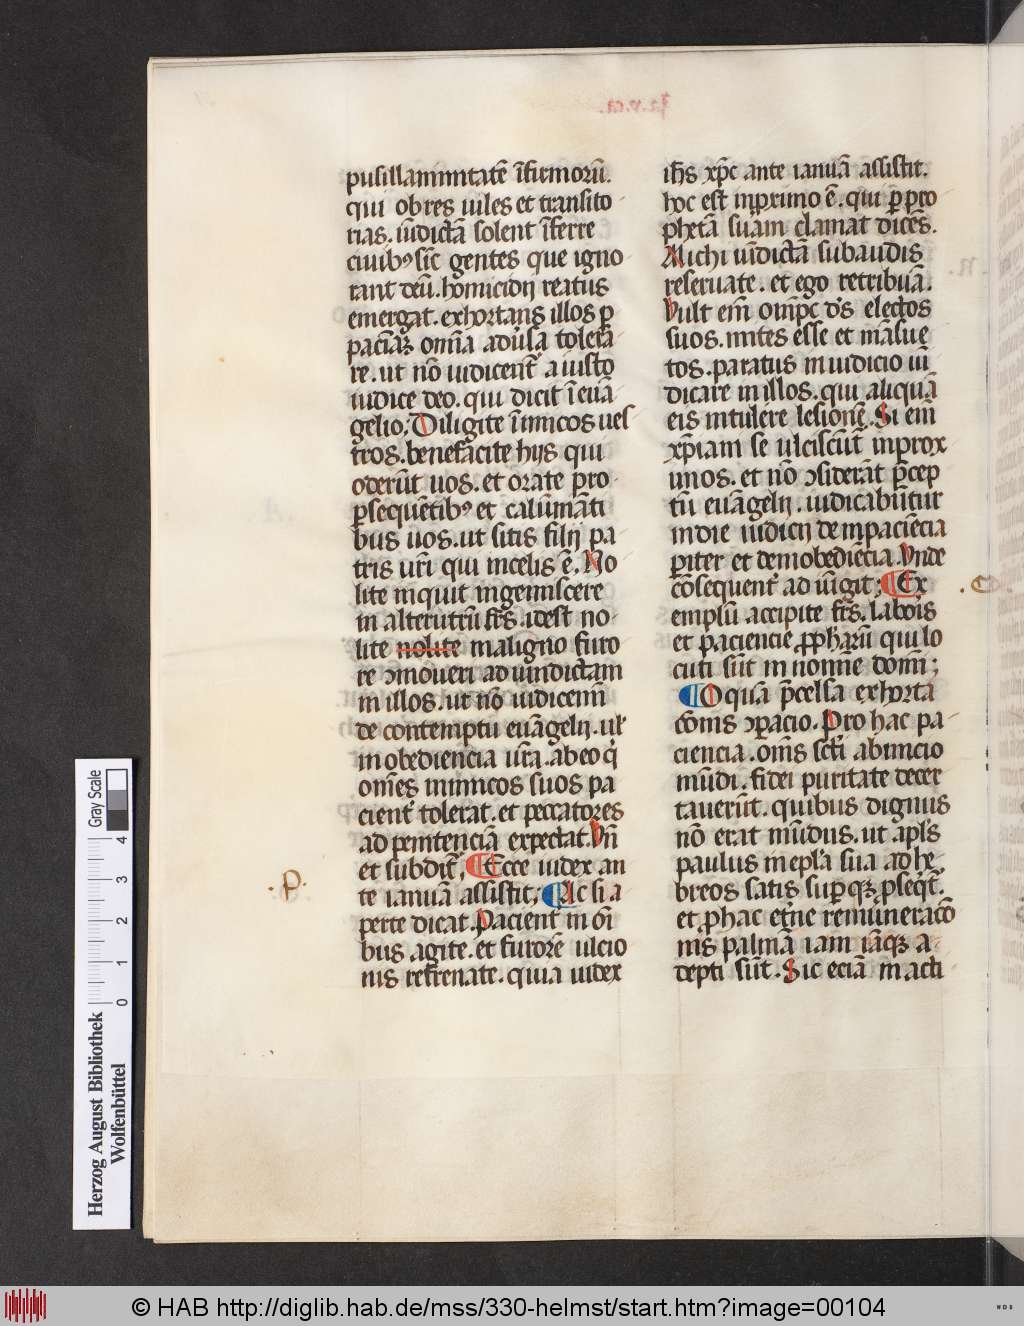 pusillaminitatē īfirmorū.
qui ob res uiles et transito
rias. iudictā solent īferre
ciuibꝰ sic̄ gentes que igno
rant deū. homicidij reatus
emergat. exhortans illos ꝑ
paciāꝫ om̄ia adu'sa tolera
re. ut nō iudicent' a iusto
iudice deo. qui dicit ī euā
gelio; Diligite īimicos ues
tros. benefacite hijs qui
oderūt uos. et orate pro
ꝑsequētibꝰ et calūmāti
bus uos. ut sitis filij pa
tris ur̄i qui in celis ē. No
lite inquit ingemiscere
in alterutrū fr̄s. idest no
lite nolite maligno furo
re ↄmoueri ad uindictam
in illos. ut nō iudicemī
de contemptu euāgelij. ul'
in obediencia ur̄a. ab eo qͥ
om̄es inimicos suos pa
cient' tolerat. et peccatores
ad penitenciā expectat. Vn̄
et subdit'; ¶ Ecce iudex an
te ianuā assistit; ¶ Ac si a
perte dicat. Pacient' in oī
bus agite. et furorē ulcio
nis refrenate. quia iudex
.p.
Ja. v. ca.
ih̄s xp̄c ante ianuā assistit.
hoc est in primo ē. qui ꝑ pro
phetā suam clamat dicēs.
Michi uīdictā subaudis
reseruate. et ego retribuā.
Vult em̄ om̄pc d's electos
suos. mites esse et māsue
tos. paratus in iudicio iu
dicare in illos. qui aliquā
eis intulere lesionē. Si em̄
xp̄iam se ulciscūt in prox
imos. et nō ↄsiderāt p̄cep
tū euāgelij. iudicabūtur
in die iudicij de inpaciēcia
ꝑiter et de inobediēcia. Vnde
cōsequent' ad iūgit; ¶ Ex
emplū accipite fr̄s. labois
et paciencie ꝓph'arū qui lo
cuti sūt in nomīe domī;
¶ O quā p̄celsa exhorta
cōnis ↄꝑacio. Pro hac pa
ciencia. om̄s sct̄i ab inicio
mūdi. fidei puritate decer
tauerūt. quibus dignus
nō erat mūdus. ut apl's
paulus in epl'a sua ad he
breos satis suꝑqꝫ ꝓseqt̄.
et ꝓ hac et'ne remūneracō
nis palmā iam iāqꝫ a
depti sūt. Sic eciam macti
.c.
Herzog August Bibliothek
Wolfenbüttel
0 1 2 3 4
Gray Scale
© HAB http://diglib.hab.de/mss/330-helmst/start.htm?image=00104